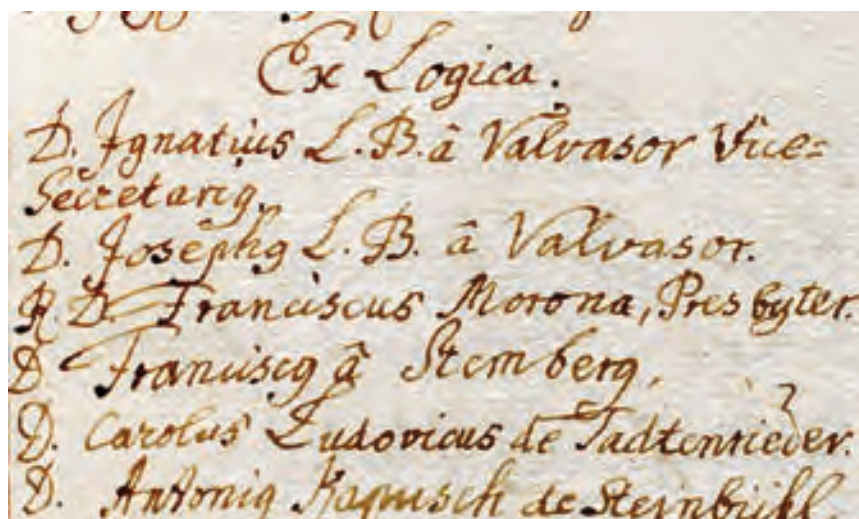 Ex Logica.
D. Ignatius L. B. â Valvasor Vice=
Secretarig.
D. Josephg L. B. â Valvasor.
R. D. Franciscus Morona, Presbyter.
D. Franciscg â Stemberg,
D. Carolus Ludovicus de Tadtenrieder.
D. Antonig Kapusch de Steinbühl.